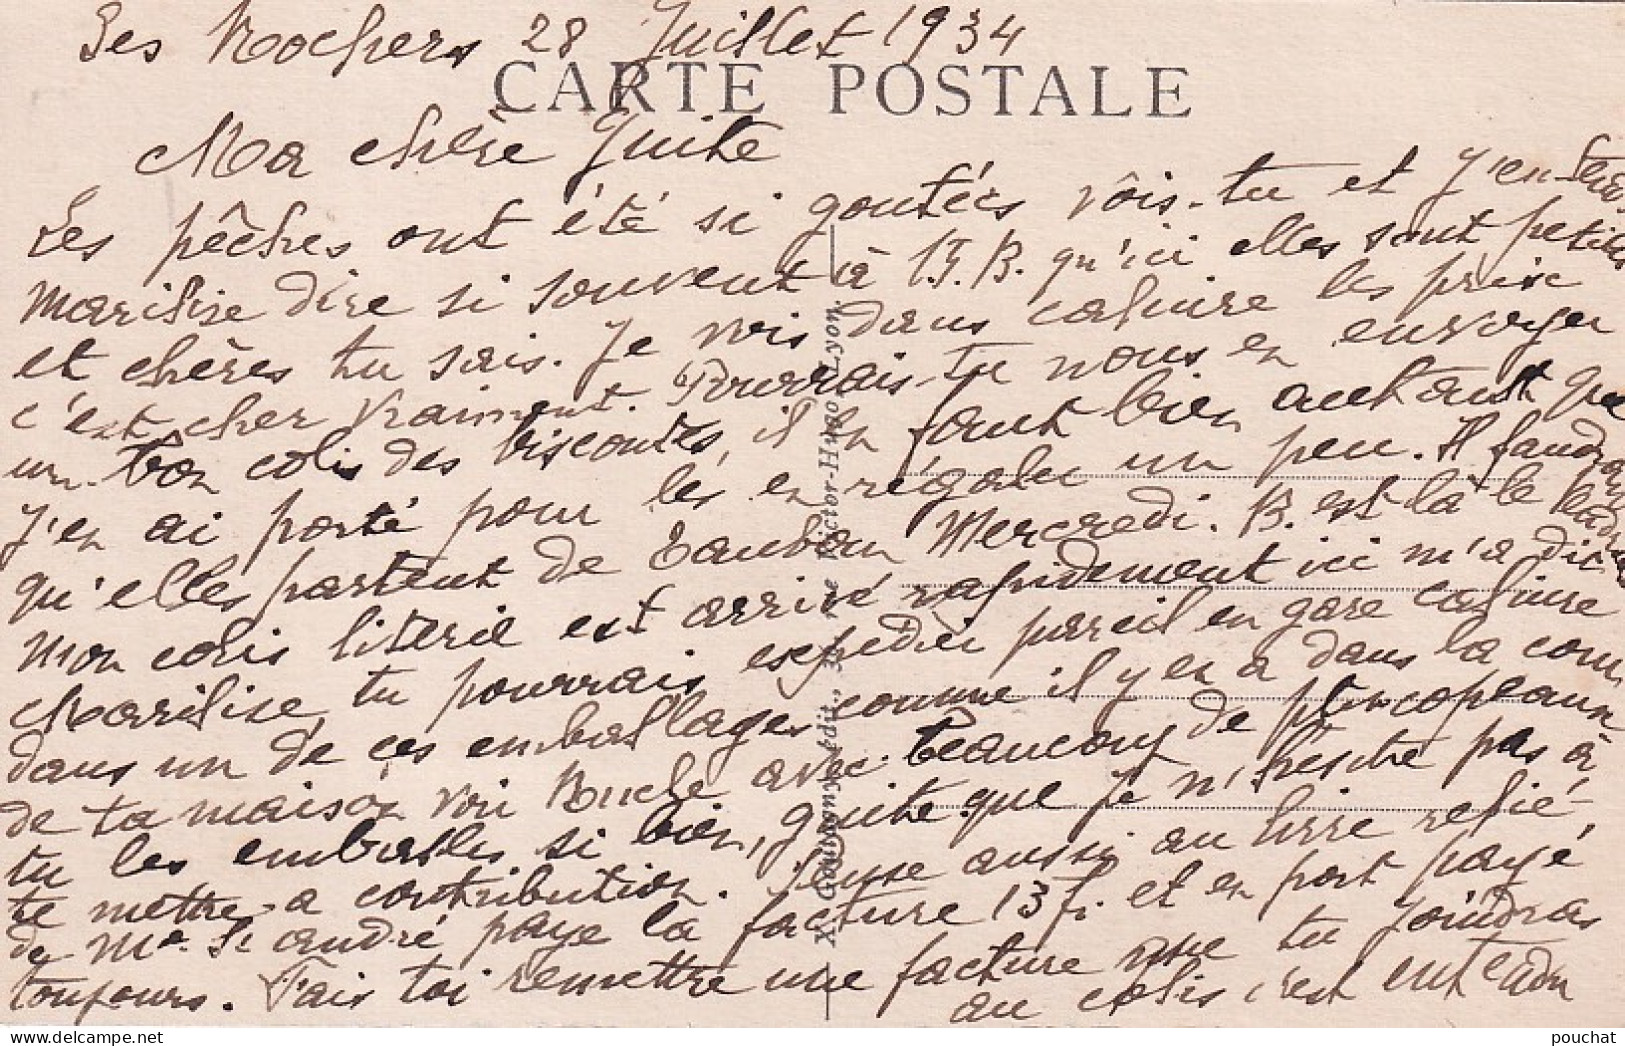 Les Rochers 28 Juillet 1934
CARTE POSTALE
Ma chère Guite
Les pêches ont été si goutées vois-tu et j'entends
Marilise dire si souvent à J.B. qu'ici elles sont petites
et chères tu sais. Je vois dans cahier les prix
c'est cher vraiment. Pourrais-tu nous en envoyer
un bon colis des biscoutes, il en faut bien autant que
J'en ai porté pour les en régaler un peu. Il faudrait
qu'elles partent de Mercredi. B. est là le
Mon colis literie est arrivé rapidement ici m'a dit
Marilise, tu pourrais expédier pareil en gare
dans un de ces emballages comme il y en a dans la cour
de ta maison voir avec beaucoup de copeaux
tu les emballes si bien, Guite que je n'hésite pas à
te mettre à contribution. Pense aussi au livre relié
de Mr St André paye la facture 13 f. et en port payé
toujours. Fais toi remettre une facture que tu joindras
au colis c'est entendu
X. Goutagny, édit., rue Victor-Hugo, Lyon.
pouchat